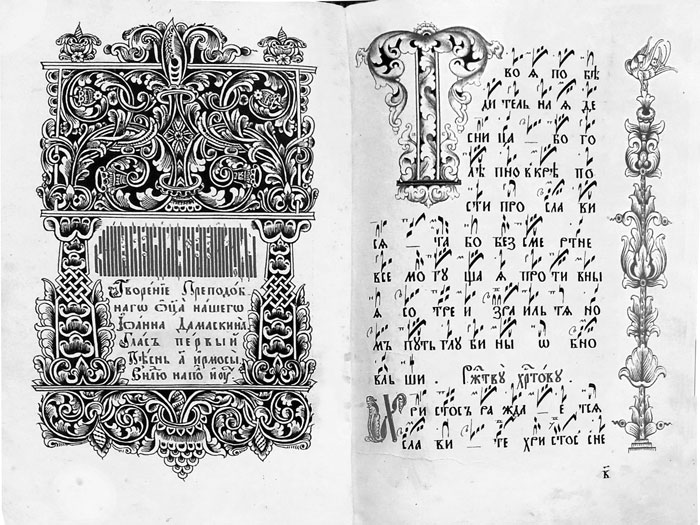 Творенїе Преподоб
наго ѻц҃а нашего
Їѻанна Дамаскина
Гласъ первый
Пѣснь а҃ ирмосы
Т
во ѧ по бѣ
ди тель на ѧ де
сни ца _ бо го
лѣ пно в крѣ по
сти про сла ви
сѧ _ та бо без сме ртне
все мо гу ща ѧ про ти вны
ѧ со тре и зра иль тѧ но
мъ путь глу би ны ѡ бно
вль ши . Рж҃тву хр҃тову.
Х ри стосъ ра жда _ е тсѧ
сла ви _ те хри стосъ с не